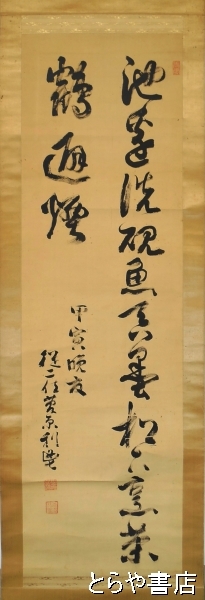 池邊洗硯魚呑墨松下烹茶
鶴避煙
甲寅晩夏
從二位菅原利豐
とらや書店